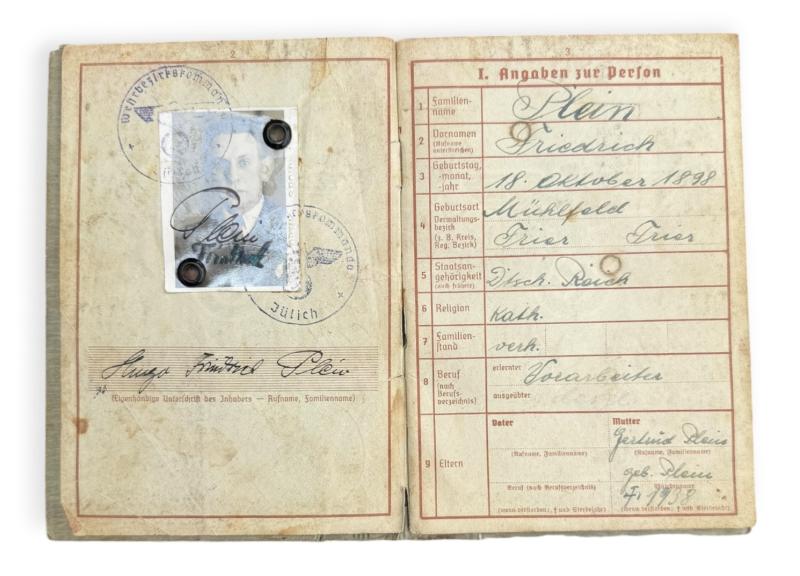 2
Wehrbezirkskommando
Plein
Friedrich
Jülich
Hugo Friedrich Plein
(Eigenhändige Unterschrift des Inhabers — Rufname, Familienname)
3
I. Angaben zur Person
1 Familien-name Plein
2 Vornamen (Rufname unterstreichen) Friedrich
3 Geburtstag, -monat, -jahr 18. Oktober 1898
4 Geburtsort Mühlfeld
Verwaltungs-bezirk (z. B. Kreis, Reg. Bezirk) Trier Trier
5 Staatsan-gehörigkeit (auch frühere) Dtsch. Reich
6 Religion kath.
7 Familien-stand verh.
8 Beruf (nach Berufs-verzeichnis) erlernter Vorarbeiter
ausgeübter
9 Eltern
Vater
(Rufname, Familienname)
Beruf (nach Berufsverzeichnis)
(wenn verstorben, † und Sterbejahr)
Mutter
Gertrud Plein
(Rufname, Familienname)
geb. Plein
Mädchenname
† 1938
(wenn verstorben, † und Sterbejahr)